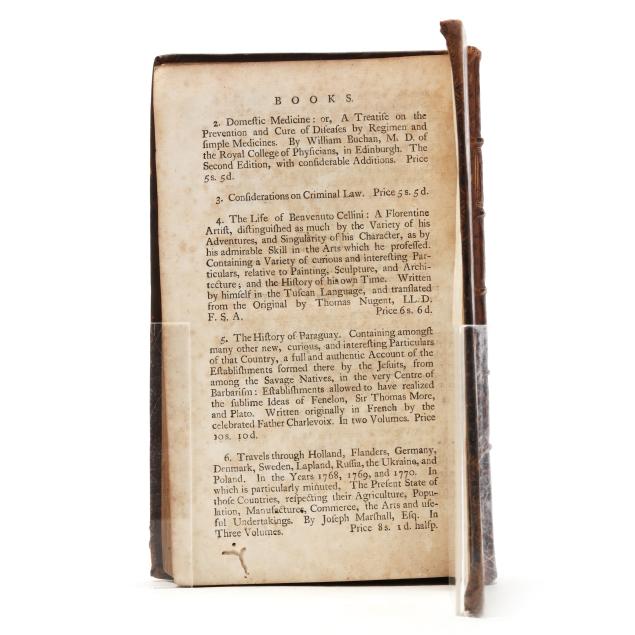 BOOKS.
2. Domeſtic Medicine: or, A Treatiſe on the
Prevention and Cure of Diſeaſes by Regimen and
ſimple Medicines. By William Buchan, M. D. of
the Royal College of Phyſicians, in Edinburgh. The
Second Edition, with conſiderable Additions. Price
5s. 5d.
3. Conſiderations on Criminal Law. Price 5s. 5d.
4. The Life of Benvenuto Cellini: A Florentine
Artiſt, diſtinguiſhed as much by the Variety of his
Adventures, and Singularity of his Character, as by
his admirable Skill in the Arts which he profeſſed.
Containing a Variety of curious and intereſting Par-
ticulars, relative to Painting, Sculpture, and Archi-
tecture; and the Hiſtory of his own Time. Written
by himſelf in the Tuſcan Language, and tranſlated
from the Original by Thomas Nugent, LL.D.
F. S. A. Price 6s. 6d.
5. The Hiſtory of Paraguay. Containing amongſt
many other new, curious, and intereſting Particulars
of that Country, a full and authentic Account of the
Eſtabliſhments formed there by the Jeſuits, from
among the Savage Natives, in the very Centre of
Barbariſm: Eſtabliſhments allowed to have realized
the ſublime Ideas of Fenelon, Sir Thomas More,
and Plato. Written originally in French by the
celebrated Father Charlevoix. In two Volumes. Price
10s. 10d.
6. Travels through Holland, Flanders, Germany,
Denmark, Sweden, Lapland, Ruſſia, the Ukraine, and
Poland. In the Years 1768, 1769, and 1770. In
which is particularly minuted, The Preſent State of
thoſe Countries, reſpecting their Agriculture, Popu-
lation, Manufactures, Commerce, the Arts and uſe-
ful Undertakings. By Joſeph Marſhall, Eſq. In
Three Volumes. Price 8s. 1d. halfp.